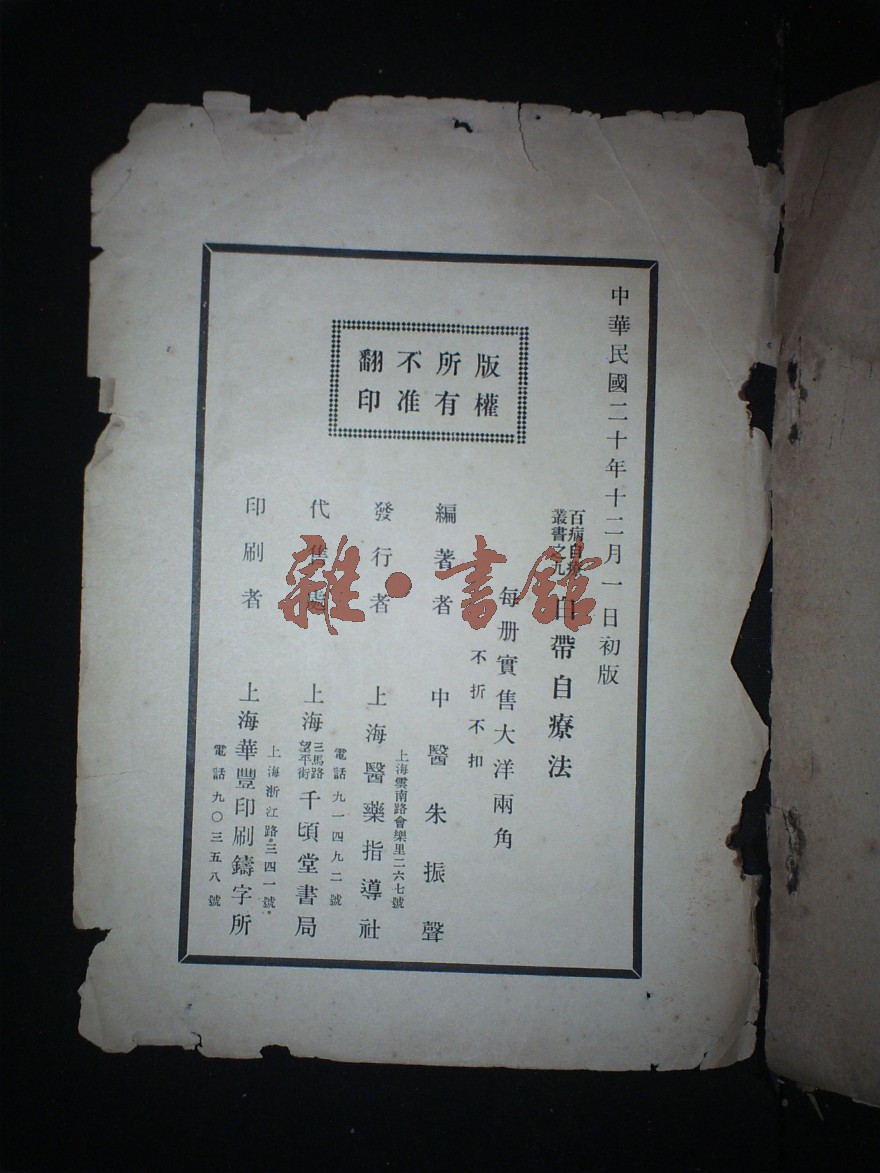 中華民國二十年十二月一日初版
百病自療
叢書之九
白帶自療法
每册實售大洋兩角
不折不扣
版權
所有
不准
翻印
編著者 中醫朱振聲
上海雲南路會樂里二六七號
發行者 上海醫藥指導社
電話九一四九二號
代售處 上海三馬路望平街千頃堂書局
上海浙江路三四一號
印刷者 上海華豐印刷鑄字所
電話九〇三五八號
雜·書館